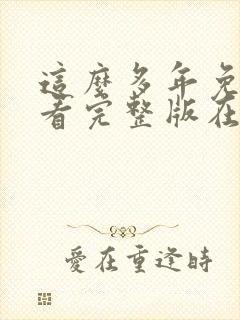 這麼多年免
看完整版在
愛在重逢時